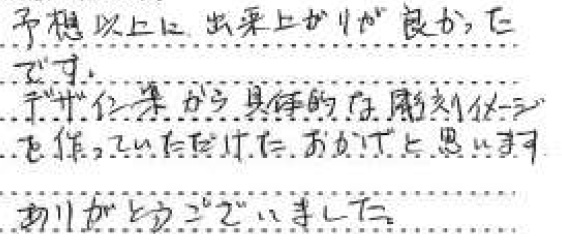 予想以上に出来上がりが良かった
です。
デザイン集から具体的な彫刻イメージ
を作っていただけたおかげと思います
ありがとうございました。